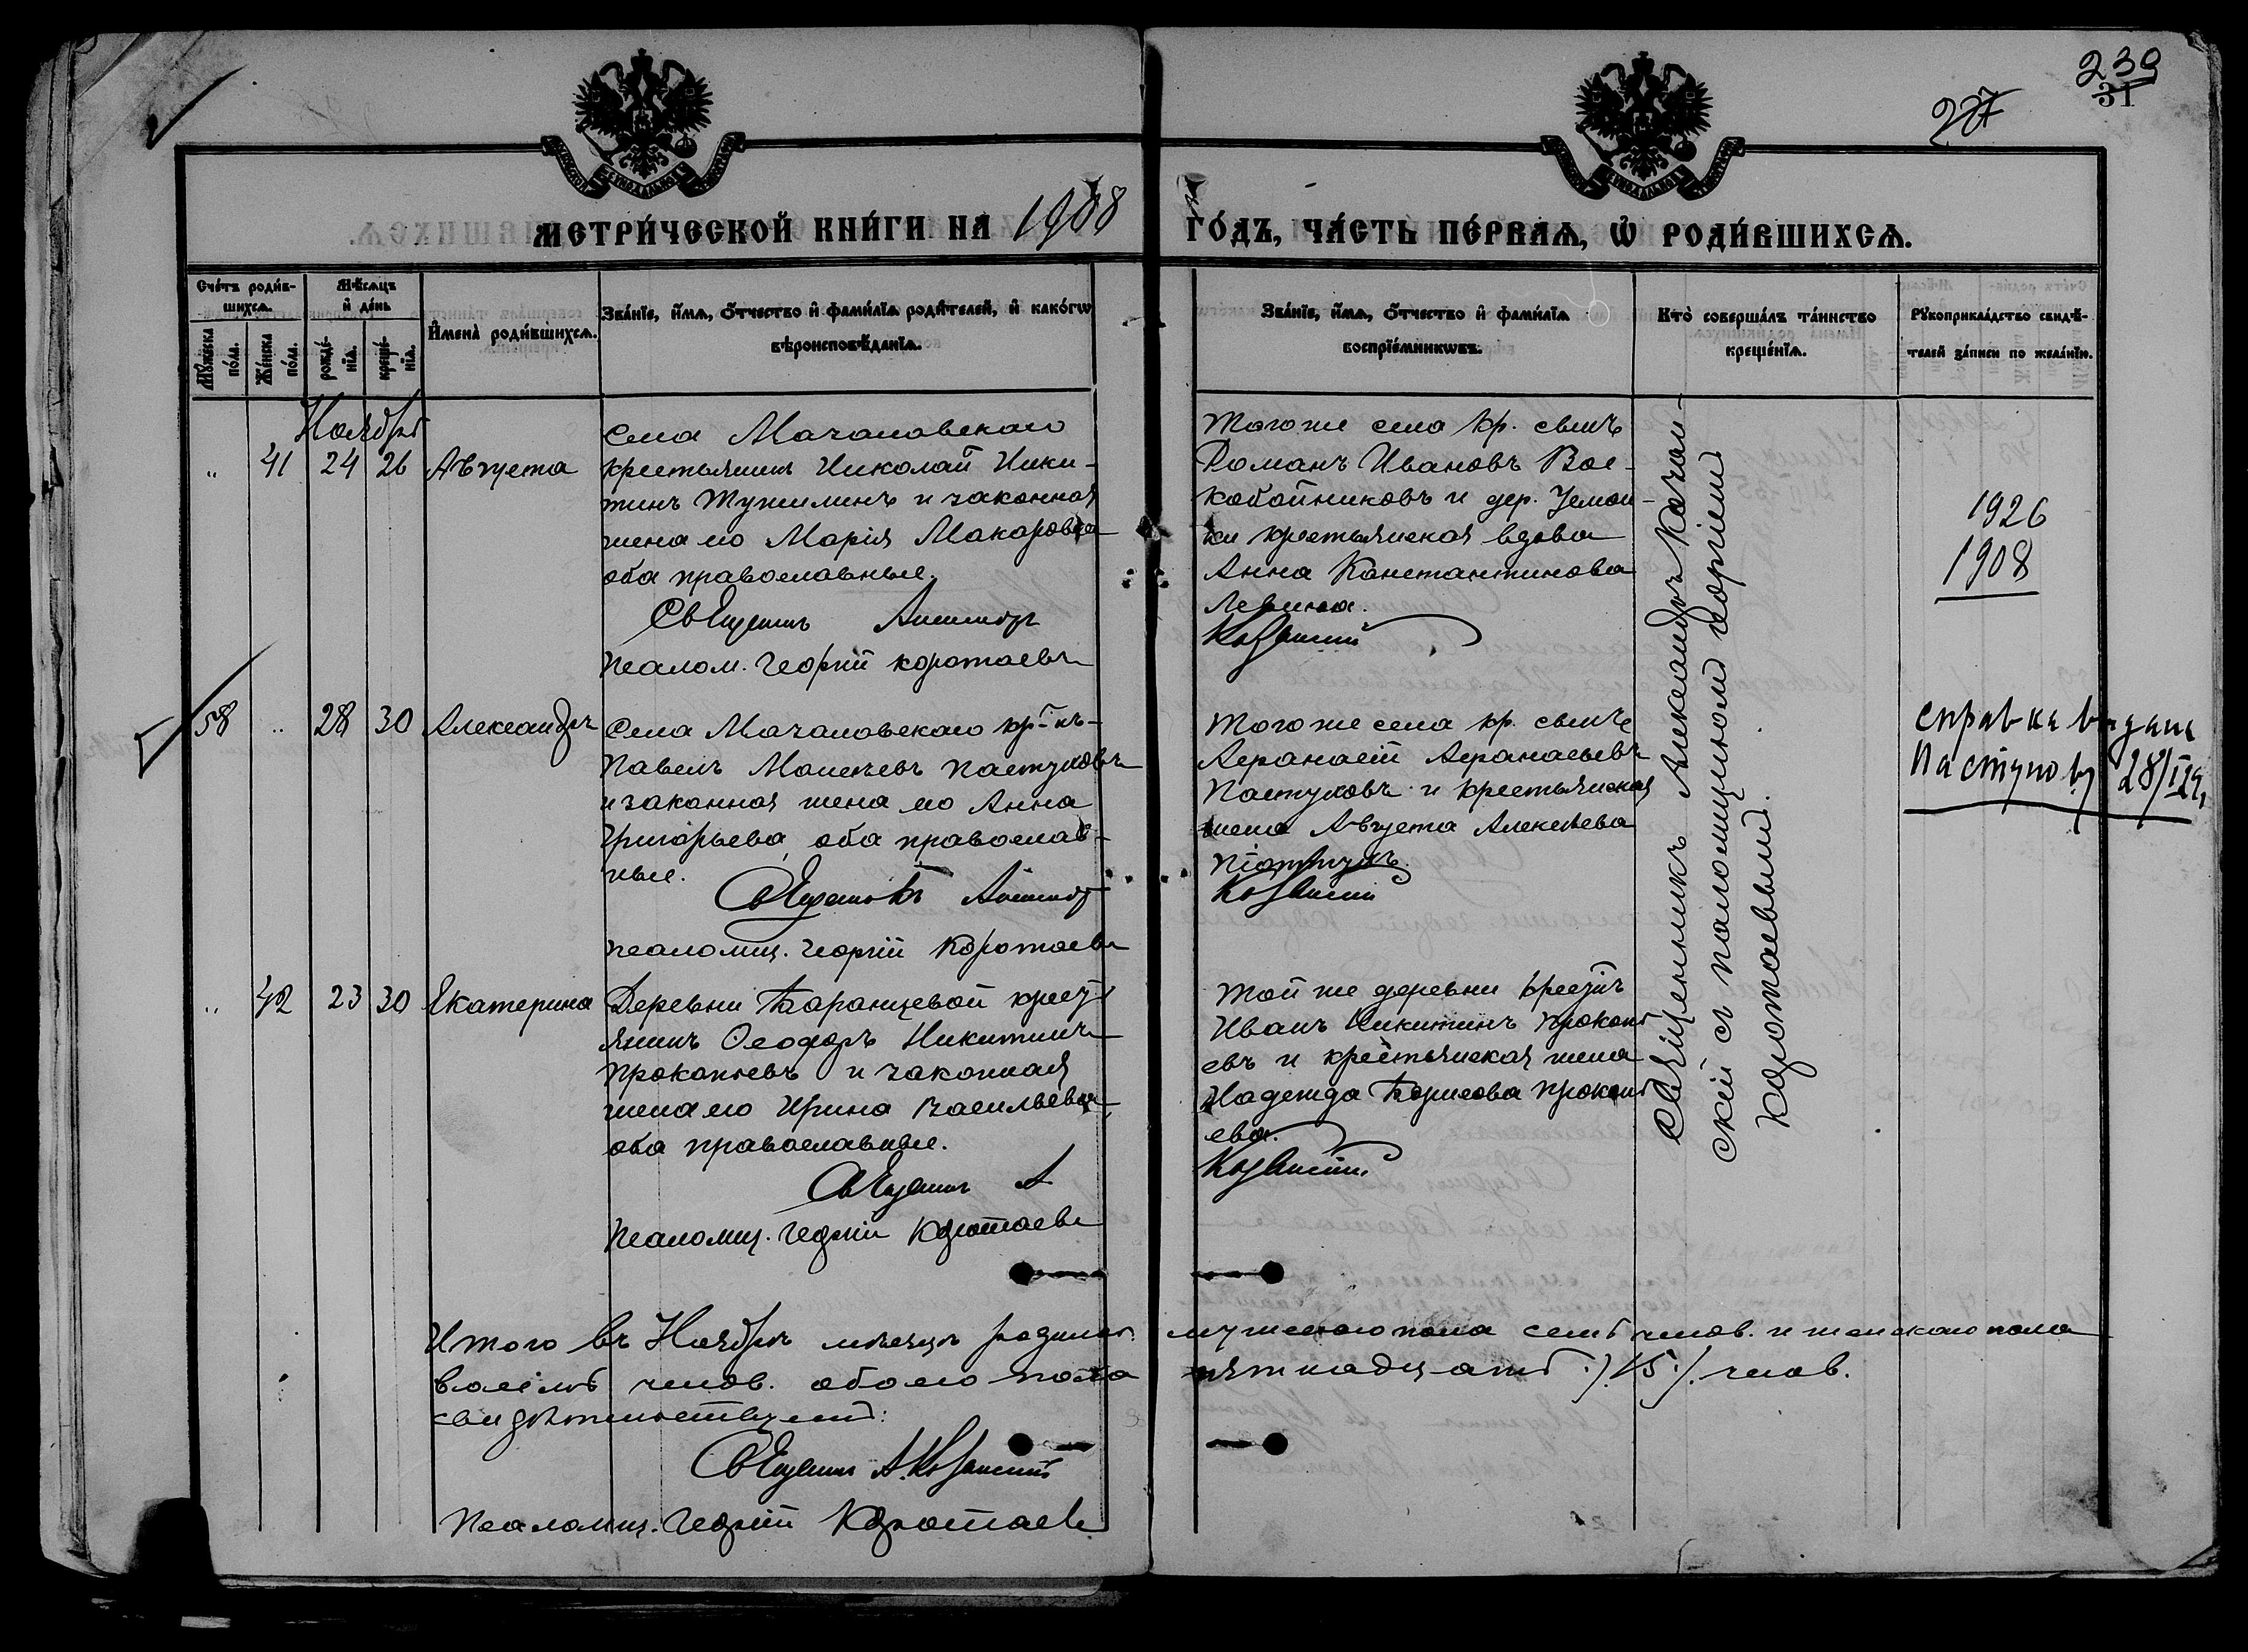 230
31
227
МЕТРИ́ЧЕСКОЙ КНИ́ГИ НА 1908 ГО́ДЪ, ЧА́СТЬ ПЕ́РВАѦ, Ѡ҆ РОДИ́ВШИХСѦ.
Сче́тъ роди́в-
шихсѧ.
Мꙋ́жеска по́ла.
Же́нска по́ла.
Мѣ́сѧцъ
и҆ де́нь
рожде́-
нїѧ.
креще́-
нїѧ.
И҆мена̀ роди́вшихсѧ.
Зва́нїе, и҆́мѧ, ѻ҆́тчество и҆ фами́лїѧ роди́телей, и҆ како́гѡ
вѣроисповѣ́данїѧ.
Зва́нїе, и҆́мѧ, ѻ҆́тчество и҆ фами́лїѧ
воспрїе́мникѡвъ.
Кто̀ соверша́лъ та́инство
креще́нїѧ.
Рꙋкоприкла́дство свидѣ́-
телей за́писи по жела́нїю.
Ноябрь
" 41 24 26 Августа
Села Мачаловскаго
крестьянинъ Николай Ники-
тинъ Тужилинъ и законная
жена его Марія Макарова
оба православные.
Священникъ Александр
Псалом. Георгій Коротаевъ
Тогоже села кр. сынъ
Романъ Ивановъ Вос-
кобойниковъ и дер.
крестьянская вдова
Анна Констант​инова
Левина.
1926
1908
58 .. 28 30 Александръ
Села Мачаловскаго кр-нъ
Павелъ Пастуховъ
и законная жена его Анна
Григорьева, оба православ-
ные.
Священникъ
Псаломщ. Георгій Коротаевъ
Тогоже села кр. сынъ
Афанасій Афанасьевъ
Пастуховъ и крестьянская
жена Августа Алексѣева
справка выдана
Пастухову 28/
.. 42 23 30 Екатерина
Деревни Баранцевой крест
янинъ Ѳеодоръ Никитинъ
Прокопьевъ и законная
жена его Ирина Васильева,
оба православные.
Священникъ А
Псаломщ. Георгій Коротаевъ
Той же деревни
Иванъ Никитинъ Прокопь
евъ и крестьянская жена
Надежда Борисова Прокопь
ева.
Священникъ Александръ
скій съ псаломщикомъ Георгіемъ
Коротаевымъ.
Итого въ Ноябрѣ мѣсяцѣ родилось мужескаго пола семь челов. и женскаго пола
восемь челов. обоего пола пятнадцать ./.15./. челов.
свидѣтельствуемъ:
Священникъ А.
Псаломщ. Георгій Коротаевъ